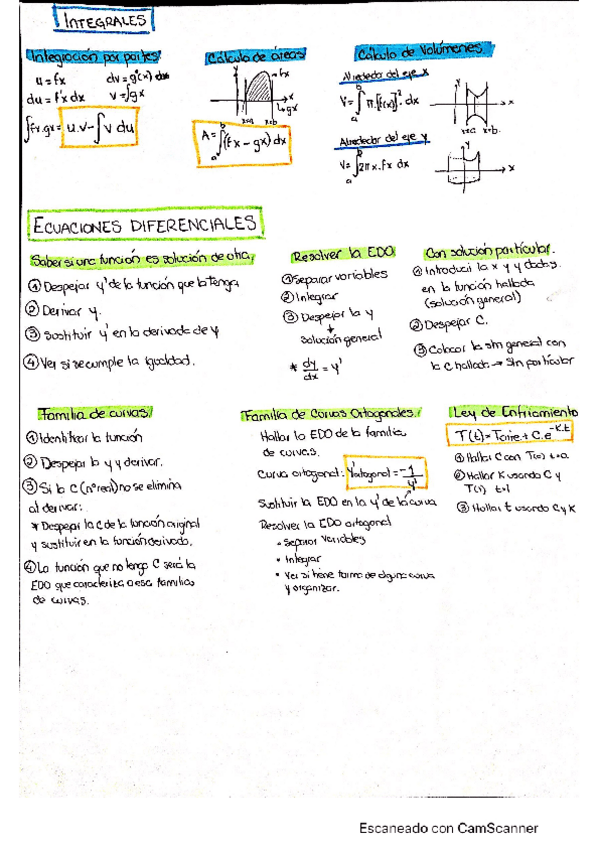 INTEGRALES
Integración por partes
u = fx dv = g'(x) dx
du = f'x dx v = ∫gx
∫fx.gx = u.v - ∫v du
Cálculo de áreas
fx
x
gx
x=a x=b
A = ∫ₐᵇ (fx - gx) dx
Cálculo de Volúmenes
Alrededor del eje x
V = ∫ₐᵇ π.[f(x)]². dx
y
x
x=a x=b
Alrededor del eje y
V = ∫ₐᵇ 2πx.fx dx
y
x
ECUACIONES DIFERENCIALES
Saber si una función es solución de otra
① Despejar y' de la función que la tenga
② Derivar y.
③ Sustituir y' en la derivada de y
④ Ver si se cumple la igualdad.
Resolver la EDO
① Separar variables
② Integrar
③ Despejar la y
↓
Solución general
* dy/dx = y'
Con solución particular.
① Introducir la x y y dadas.
en la función hallada
(solución general)
② Despejar C.
③ Colocar la sln general con
la C hallada → Sln particular
Familia de curvas
① Identificar la función
② Despejar la y y derivar.
③ Si la C (nº real) no se elimina
al derivar:
* Despejar la C de la función original
y sustituir en la función derivada.
④ La función que no tenga C será la
EDO que caracteriza a esa familia
de curvas.
Familia de Curvas Ortogonales
Hallar la EDO de la familia
de curvas.
Curva ortogonal: Y'ortogonal = -1/y'
Sustituir la EDO en la y' de la curva
Resolver la EDO ortogonal
• Separar Variables
• Integrar
• Ver si tiene forma de alguna curva
y organizar.
Ley de Enfriamiento
T(t) = Taire + C.e^-K.t
① Hallar C con T(0) t=0
② Hallar K usando C y
T(1) t=1
③ Hallar t usando C y K
Escaneado con CamScanner